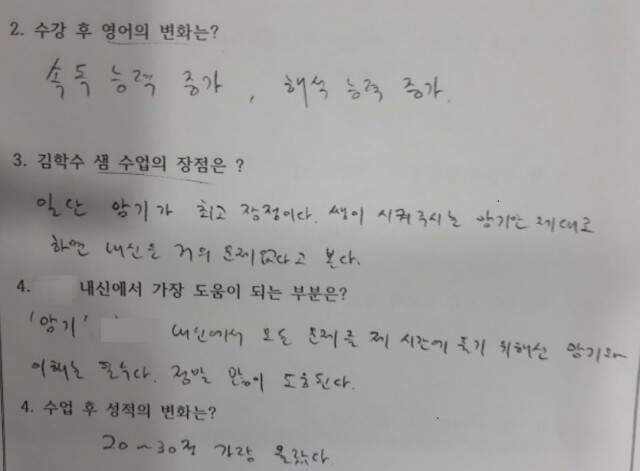 2. 수강 후 영어의 변화는?
속독 능력 증가, 해석 능력 증가.
3. 김학수 샘 수업의 장점은 ?
일단 암기가 최고 장점이다. 쌤이 시켜주시는 암기만 제대로
하면 내신은 거의 문제없다고 본다.
4. 내신에서 가장 도움이 되는 부분은?
'암기' 내신에서 모든 문제를 제 시간에 풀기 위해선 암기와
이해는 필수다. 정말 많이 도움된다.
4. 수업 후 성적의 변화는?
20~30점 가량 올랐다.